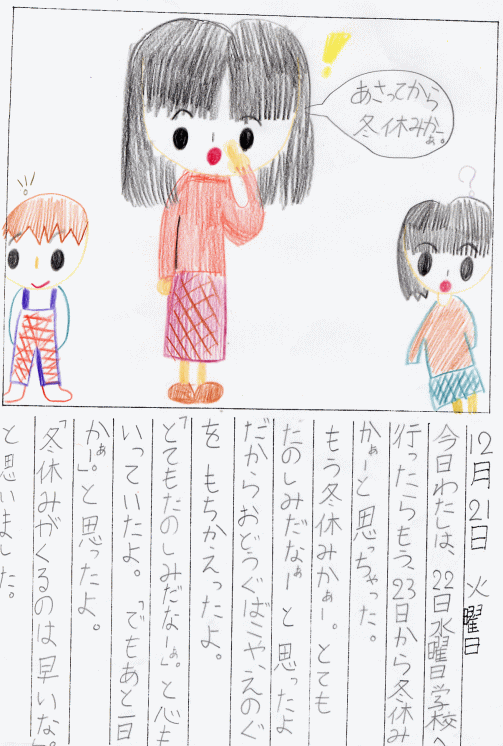 あさってから
冬休みかぁー。
12月21日 火曜日
今日わたしは、22日水曜日学校へ
行ったらもう、23日から冬休み
かぁーと思っちゃった。
もう冬休みかぁー。とても
たのしみだなぁーと思ったよ
だからおどうぐばこや、えのぐ
をもちかえったよ。
「とてもたのしみだなーぁ。」と心も
いっていたよ。「でもあと一日
かぁー。」と思ったよ。
「冬休みがくるのは早いな。
と思いました。